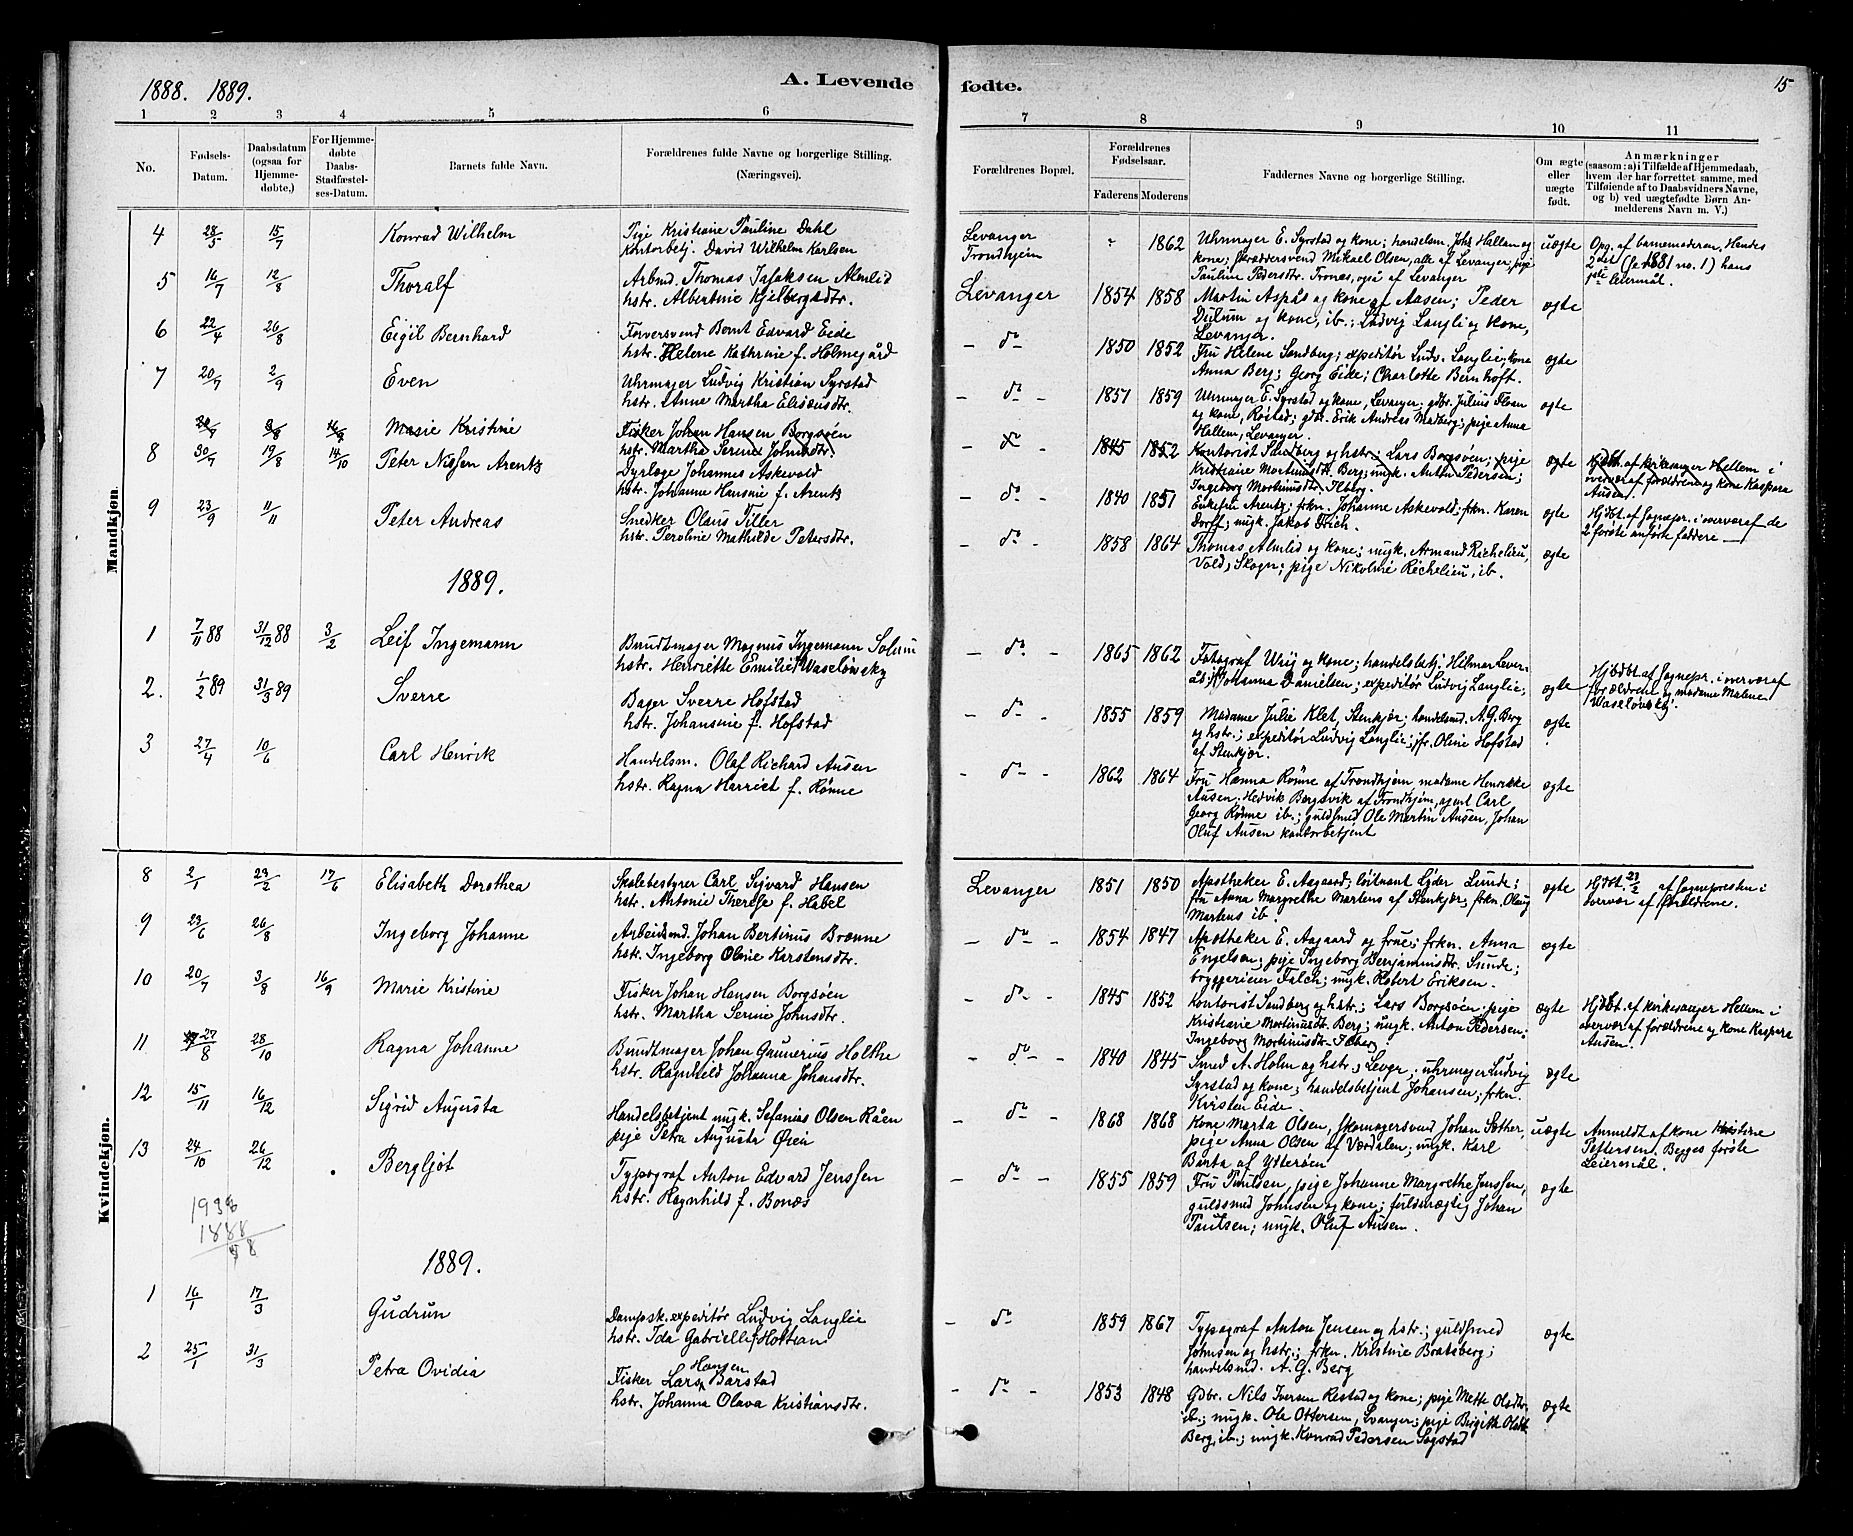 1888. 1889.
A. Levende
fødte.
15
1 2 3 4 5 6
7 8 9 10 11
No.
Fødsels-
Datum.
Daabsdatum
(ogsaa for
Hjemme-
døbte,)
For Hjemme-
døbte
Daabs-
Stadfæstel-
ses-Datum.
Barnets fulde Navn.
Forældrenes fulde Navne og borgerlige Stilling.
(Næringsvei).
Forældrenes Bopæl.
Forældrenes
Fødselsaar.
Faderens Moderens
Faddernes Navne og borgerlige Stilling.
Om ægte
eller
uægte
født.
Anmærkninger
(saasom: a) i Tilfælde af Hjemmedaab,
hvem der har forrettet samme, med
Tilføiende af to Daabsvidners Navne,
og b) ved uægtefødte Børn An-
melderens Navn m. V.)
Mandkjøn.
4 28/5 15/7 Konrad Wilhelm
Pige Kristiane Pauline Dahl
Kontorbetj. David Wilhelm Karlsen
Levanger
Trondhjem
- 1862
Uhrmager E. Syrstad og kone; handelsm. Johs Hallem og
kone; skræddersvend Mikael Olsen, alle af Levanger, pige
Pauline Pedersdtr. Tronæs, også af Levanger
uægte
Opg. af barnemoderen. Hendes
2det (se 1881 no. 1) hans
1ste leiermål.
5 16/7 12/8 Thoralf
Arbmd. Thomas Isaksen Almlid
hstr. Albertine Kjelbergsdtr.
Levanger 1854 1858
Martin Aspås og kone af Aasen; Peder
Duum og kone, ib.; Ludvig Langli og kone,
Levanger.
ægte
6 22/4 26/8 Eigil Bernhard
Farversvend Bernt Edvard Eide
hstr. Helene Kathrine f. Holmegård
- do - 1850 1852
Fru Helene Sandberg; expeditør Ludv. Langlie, kone
Anna Berg; Georg Eide; Charlotte Bernhoft.
ægte
7 20/7 2/9 Even
Uhrmager Ludvig Kristian Syrstad
hstr. Anne Martha Elisæusdtr.
- do - 1857 1859
Uhrmager E. Syrstad og kone, Levanger; gdbr. Julius Floan
og kone, Røstad; gdbr. Erik Andreas Madberg; pige Anna
Hallem, Levanger.
ægte
20/7 3/8 16/9 Marie Kristine
Fisker Johan Hansen Borgsöen
hstr. Martha Serine Johnsdtr.
- do 1845 1852
Kontorist Sandberg og hstr; Lars Borgsöen; pige
Kristiane Mortinusdtr. Berg; ungk. Anton Pedersen;
Ingeborg Mortinusdtr. Ilberg.
ægte
Hjdbt. af kirkesanger Hellem i
overvær af forældrene og kone Kaspara
Ausen.
8 30/7 19/8 14/10 Peter Nissen Arentz
Dyrlæge Johannes Askevold
hstr. Johanne Hansine f. Arentz
- do - 1840 1851
Enkefru Arentz; frkn. Johanne Askevold; frkn. Karen
Dorff; ungk. Jakob Frich.
ægte
Hjdbt. af sognepr. i overvær af de
2 første anførte faddere
9 23/9 11/11 Peter Andreas
Snedker Olaus Tiller
hstr. Peroline Mathilde Petersdtr.
- do - 1858 1864
Thomas Almlid og kone; ungk. Armand Richelieu,
Vold, Skogn; pige Nikoline Richelieu, ib.
ægte
1889.
1 7/11 88 31/12 88 3/2 Leif Ingemann
Bundtmager Magnus Ingemann Solum
hstr. Henriette Emilie Waselovsky
- do - 1865 1862
Fotograf Wiig og kone; handelsbetj. Hilmar Lever-
ås; Johanna Danielsen; expeditör Ludvig Langlie;
ægte
Hjdbt. af Sognepr. i overvær af
forældrene og madame Malene
Waselovsky.
2. 1/2 89 31/3 89 Sverre
Bager Sverre Hofstad
hstr. Johansine f. Hofstad
- do - 1855 1859
Madame Julie Klet, Stenkjær; handelsmd. A. G. Berg
og hstr.; expeditör Ludvig Langlie; jfr. Oline Hofstad
af Stenkjær.
ægte
3 27/4 10/6 Carl Henrik
Handelsm. Olaf Richard Ausen
hstr. Ragna Harriet f. Rönne
- do - 1862 1864
Fru Hanna Rönne af Trondhjem madame Henrikke
Ausen. Hedvik Bergsvik af Trondhjem, agent Carl
Georg Rönne ib.; guldsmed Ole Martin Ausen, Johan
Oluf Ausen kontorbetjent
ægte
Kvindekjøn.
8 2/1 23/2 17/6 Elisabeth Dorothea
Skolebestyrer Carl Sigvard Hansen
hstr. Antonie Therese f. Habel
Levanger 1851 1850
Apotheker E. Aagaard; löitnant Lyder Lunde;
fru Anna Margrethe Martens af Stenkjær; frkn. Olaug
Martens ib.
ægte
Hjdbt. 23/2 af Sognepresten i
overvær af forældrene.
9 23/6 26/8 Ingeborg Johanne
Arbeidsmd. Johan Bertinus Brænne
hstr. Ingeborg Oline Karstensdtr.
- do - 1854 1847
Apotheker E. Aagaard og frue; frkn. Anna
Engelsen; pige Ingeborg Benjaminsdtr. Sunde;
bryggerieier Falch; ungk. Robert Eriksen.
ægte
10 20/7 3/8 16/9 Marie Kristine
Fisker Johan Hansen Borgsöen
hstr. Martha Serine Johnsdtr.
- do - 1845 1852
Kontorist Sandberg og hstr; Lars Borgsöen, pige
Kristiane Mortinusdtr. Berg; ungk. Anton Pedersen;
Ingeborg Mortinusdtr. Ilberg.
ægte
Hjdbt. af kirkesanger Hellem i
overvær af forældrene og kone Kaspara
Ausen.
11 27/8 28/10 Ragna Johanne
Bundtmager Johan Gunerius Holthe
hstr. Ragnhild Johanna Johansdtr.
- do - 1840 1845
Smed A. Holm og hstr; Levgr.; uhrmager Ludvig
Syrstad og kone; handelsbetjent Johansen; frkn.
Kirsten Eide.
ægte
12 15/11 16/12 Sigrid Augusta
Handelsbetjent ungk. Sefanias Olsen Råen
pige Petra Augusta Øien
- do - 1868 1868
Kone Marta Olsen, Skomagersvend Johan Sæther,
pige Anna Olsen af Værdalen; ungk. Karl
Barta af Ytterøen
uægte
Anmeldt af kone Kristine
Pettersen. Begges første
Leiermål.
13 24/10 26/12 Bergljot
Typograf Anton Edvard Jenssen
hstr. Ragnhild f. Bonæs
- do - 1855 1859
Fru Paulsen, pige Johanne Margrethe Jenssen,
guldsmed Johnsen og kone; fuldmægtig Johan
Paulsen; ungk. Oluf Ausen.
ægte
1888
1889.
1 16/1 17/3 Gudrun
Dampsk. expeditør Ludvig Langlie
hstr. Ida Gabrielle f. Holtian
- do - 1859 1867
Typograf Anton Jensen og hstr.; guldsmed
Johnsen og hstr.; frkn. Kristine Bratsberg;
handelsmd. A. G. Berg
ægte
2 25/1 31/3 Petra Ovidia
Hansen
Fisker Lars Barstad
hstr. Johanna Olava Kristiansdtr.
- do - 1853 1848
Gdbr. Nils Iversen Restad og kone; pige Mette Olsdtr.
ib.; ungk. Ole Ottersen, Levanger; pige Bergitte Olsdt.
Berg, ib.; ungk. Konrad Pedersen Sogstad
ægte